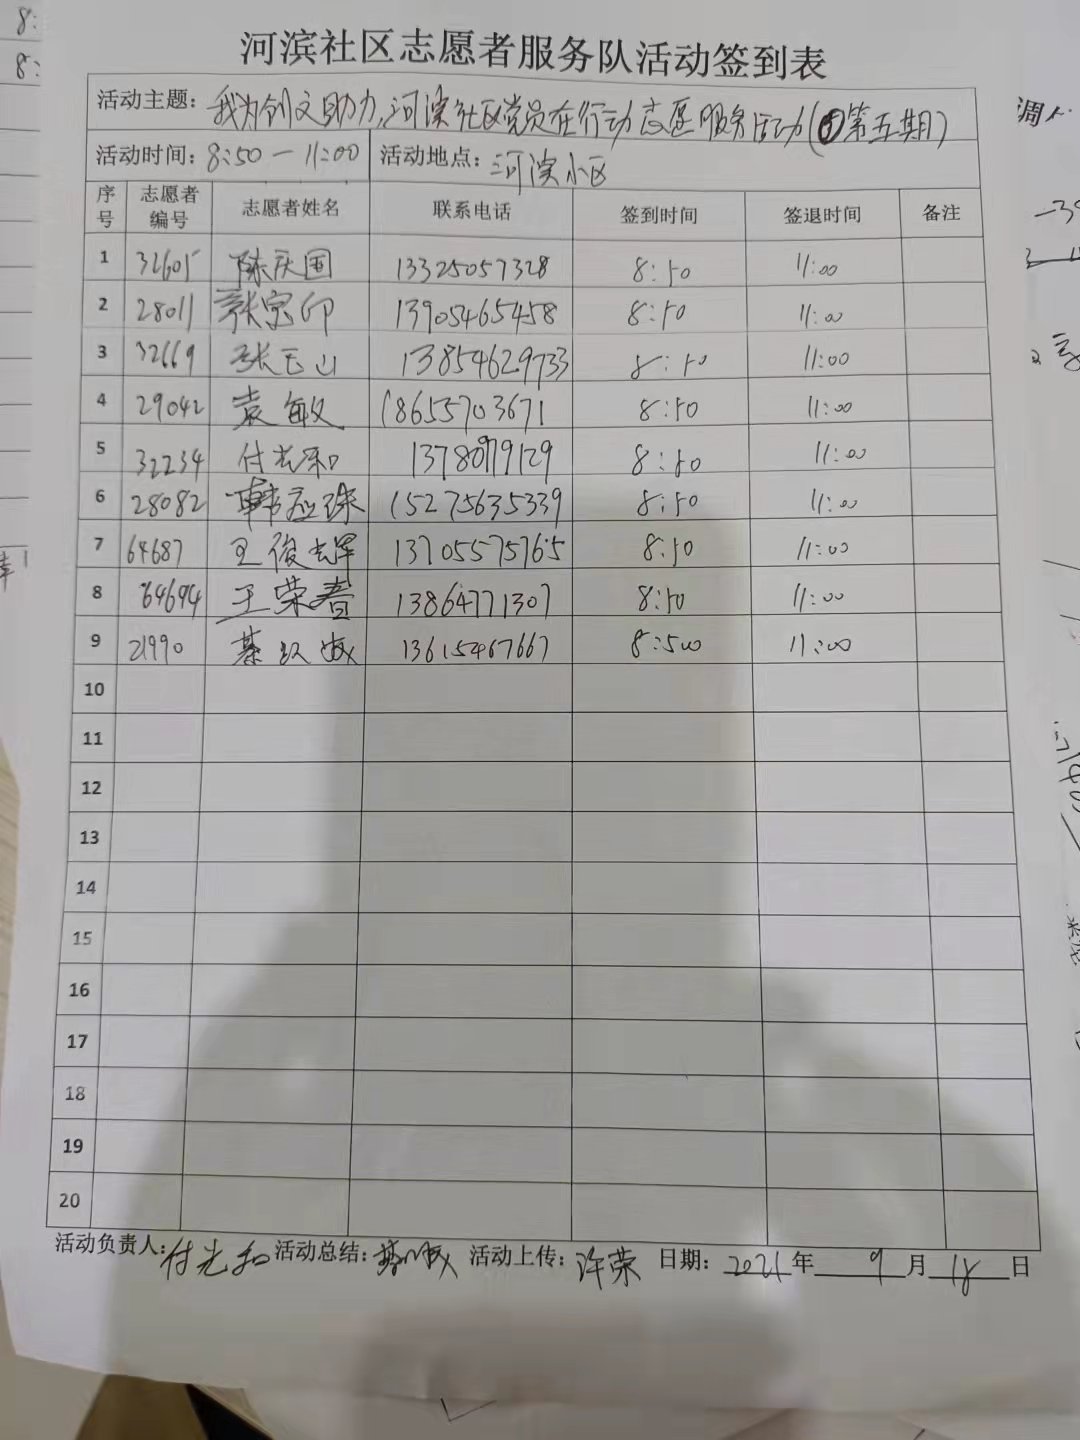 河滨社区志愿者服务队活动签到表
活动主题: 我为创文助力,河滨社区党员在行动志愿服务活动(第五期)
活动时间: 8:50—11:00 活动地点: 河滨小区
序号 志愿者编号 志愿者姓名 联系电话 签到时间 签退时间 备注
1 32605 陈庆国 13325057328 8:50 11:00
2 28011 张宝印 13905465458 8:50 11:00
3 32669 张玉山 13854629733 8:50 11:00
4 29042 袁敏 18655703671 8:50 11:00
5 32234 付光和 13780779129 8:50 11:00
6 28082 韩应珠 15275635339 8:50 11:00
7 64687 王俊辉 13705575765 8:50 11:00
8 64694 王荣春 13864771307 8:50 11:00
9 21990 綦 敏 13615467667 8:500 11:00
10
11
12
13
14
15
16
17
18
19
20
活动负责人: 付光和 活动总结: 綦 敏 活动上传: 许荣 日期: 2021年 9月18日